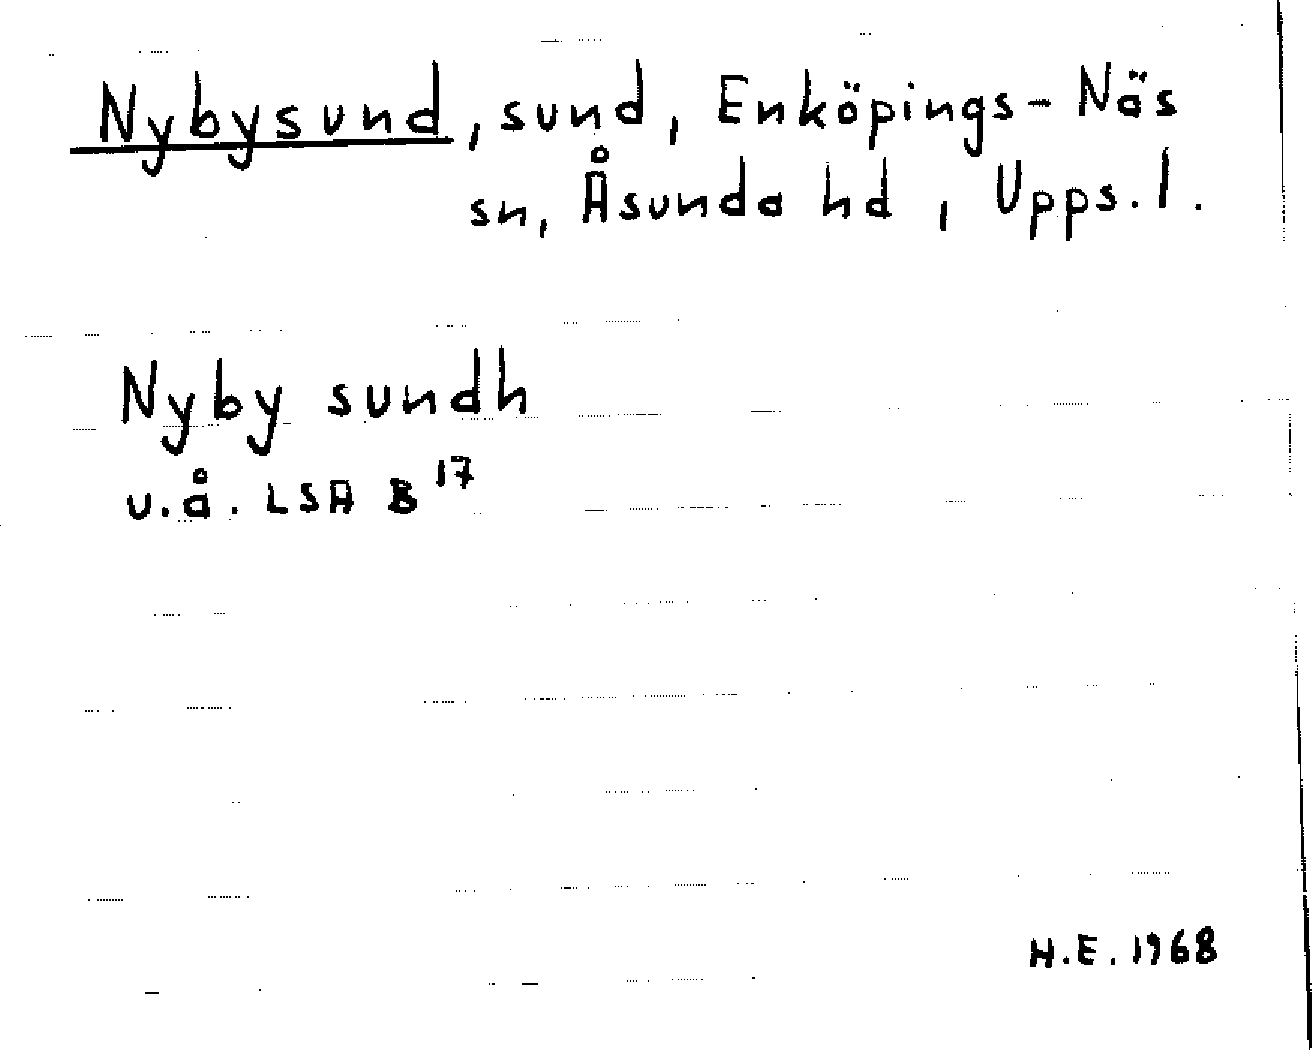 Nybysund, sund, Enköpings-Näs
sn, Åsunda hd, Upps. l.
Nyby sundh
u.å. LSA B¹⁷
H.E. 1968